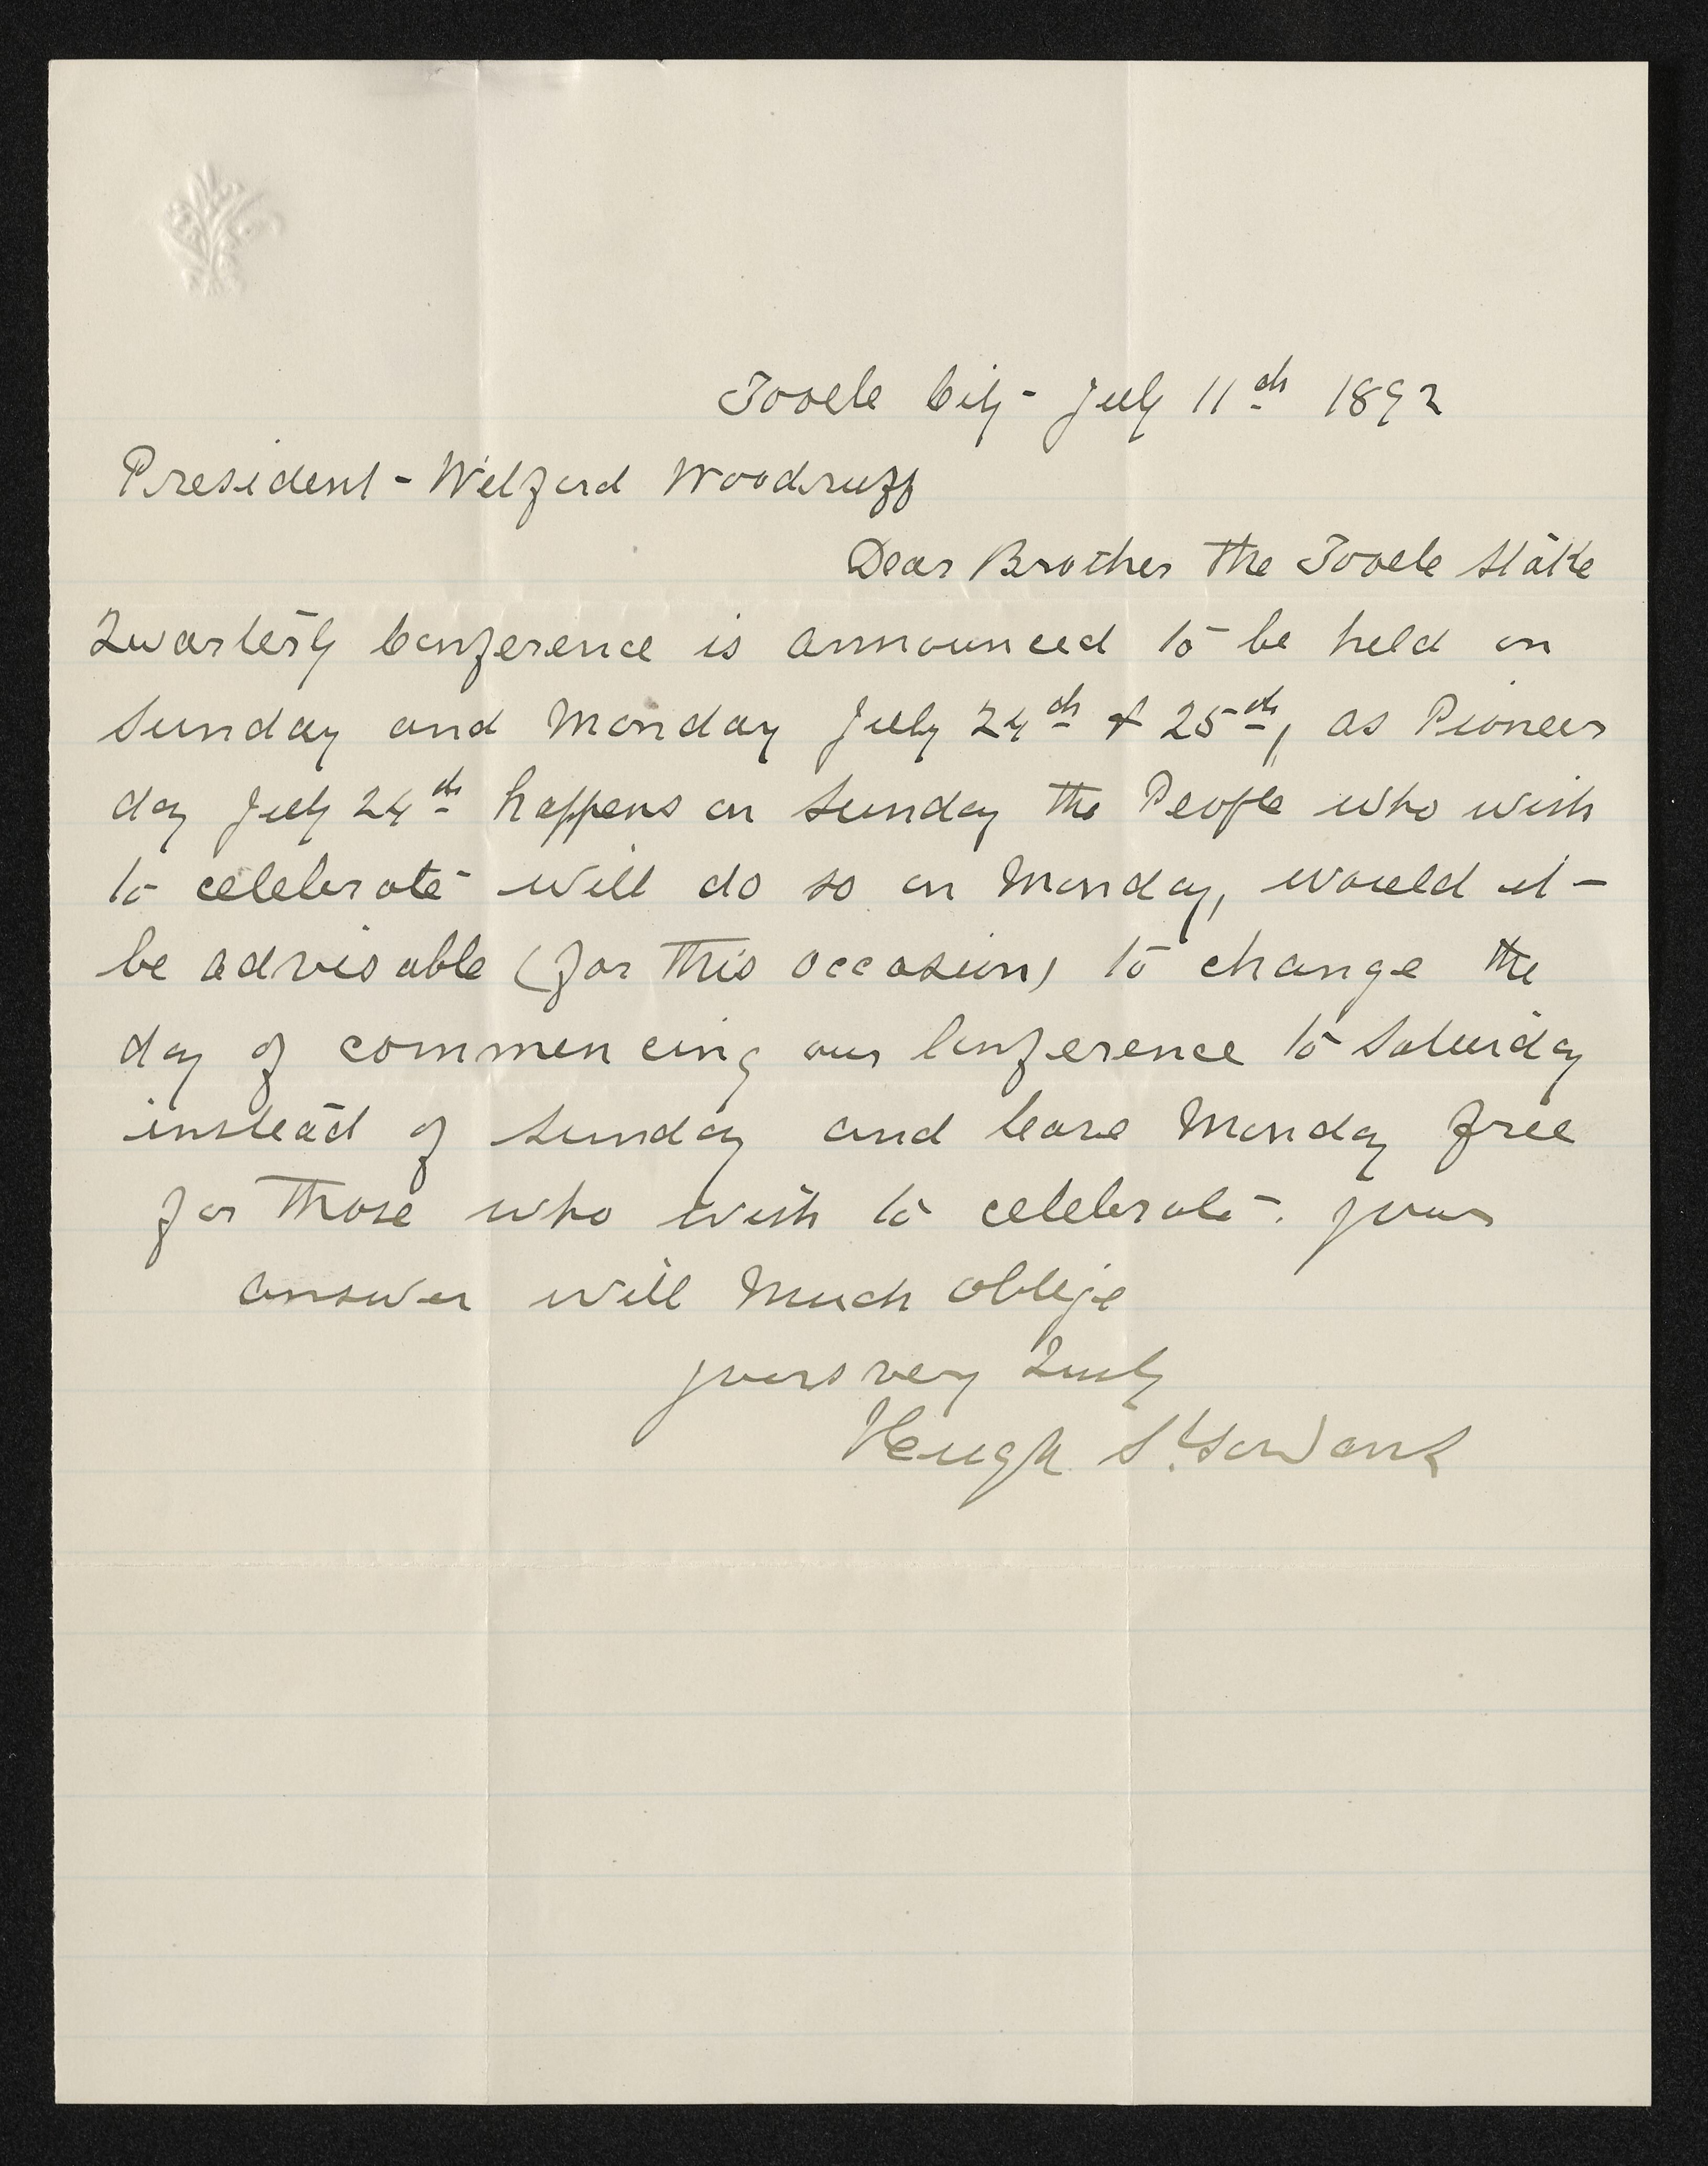 Tooele City - July 11th 1892
President - Wilford Woodruff
Dear Brother The Tooele Stake
Quarterly Conference is announced to be held on
Sunday and Monday July 24th & 25th, as Pioneer
day July 24th happens on Sunday the People who wish
to celebrate will do so on Monday, would it -
be advisable (for this occasion) to change the
day of commencing our Conference to Saturday
instead of Sunday and leave Monday free
for those who wish to celebrate. your
answer will much oblige
yours very Truly
Hugh S. Gowans